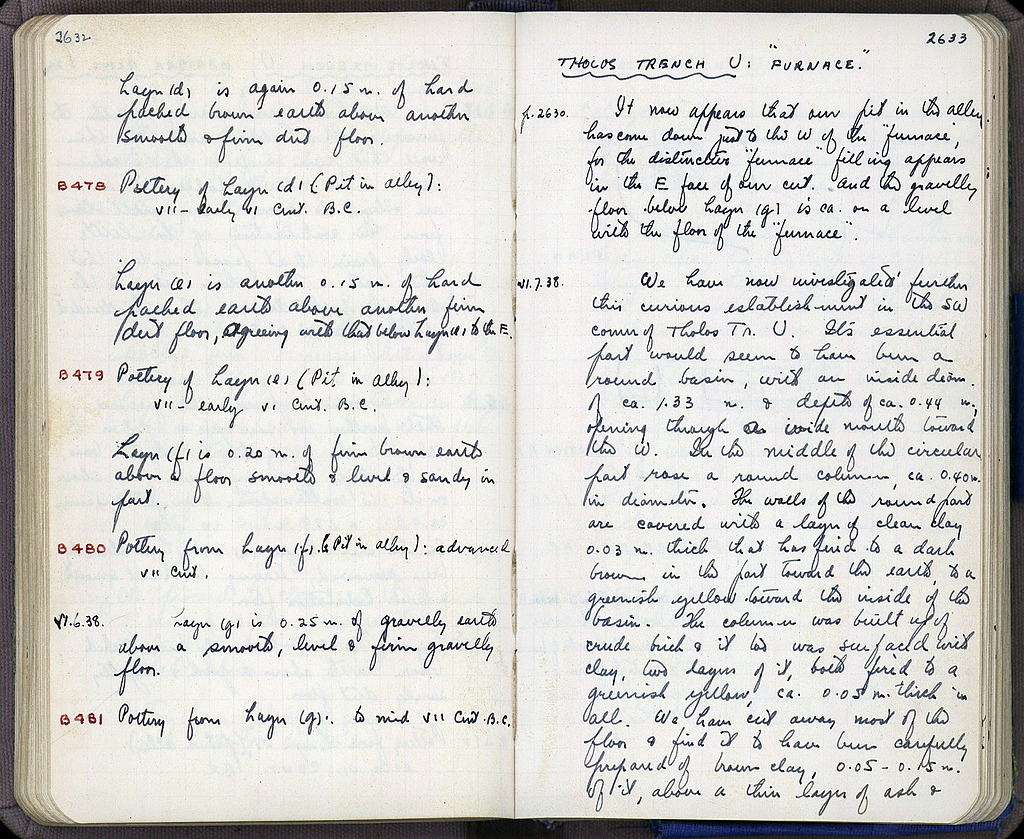 2632
Layer (d) is again 0.15 m. of hard
packed brown earth above another
smooth & firm dirt floor.
B 478 Pottery of Layer (d) (Pit in alley):
vii - early vi Cent. B.C.
Layer (e) is another 0.15 m. of hard
packed earth above another firm
dirt floor, agreeing with that below Layer (e) to the E.
B 479 Pottery of Layer (e) (Pit in alley):
vii - early vi Cent. B.C.
Layer (f) is 0.20 m. of firm brown earth
above a floor smooth & level & sandy in
part.
B 480 Pottery from Layer (f) (Pit in alley): advanced
vii Cent.
VI.6.38. Layer (g) is 0.25 m. of gravelly earth
above a smooth, level & firm gravelly
floor.
B 481 Pottery from Layer (g). to mid vii Cent. B.C.
2633
THOLOS TRENCH U: "FURNACE."
p. 2630. It now appears that our pit in the alley
has come down just to the W of the "furnace",
for the distinctive "furnace" filling appears
in the E face of our cut. And the gravelly
floor below Layer (g) is ca. on a level
with the floor of the "furnace".
VI.7.38. We have now investigated further
this curious establishment in the SW
corner of Tholos Tr. U. Its essential
part would seem to have been a
round basin, with an inside diam.
of ca. 1.33 m. & depth of ca. 0.44 m.,
opening through a wide mouth toward
the W. In the middle of the circular
part rose a round column, ca. 0.40 m.
in diameter. The walls of the round part
are covered with a layer of clean clay
0.03 m. thick that has fired to a dark
brown in the part toward the earth, to a
greenish yellow toward the inside of the
basin. The column was built up of
crude brick & it too was surfaced with
clay, two layers of it, both fired to a
greenish yellow, ca. 0.05 m. thick in
all. We have cut away most of the
floor & find it to have been carefully
prepared of brown clay, 0.05 - 0.15 m.
of it, above a thin layer of ash &